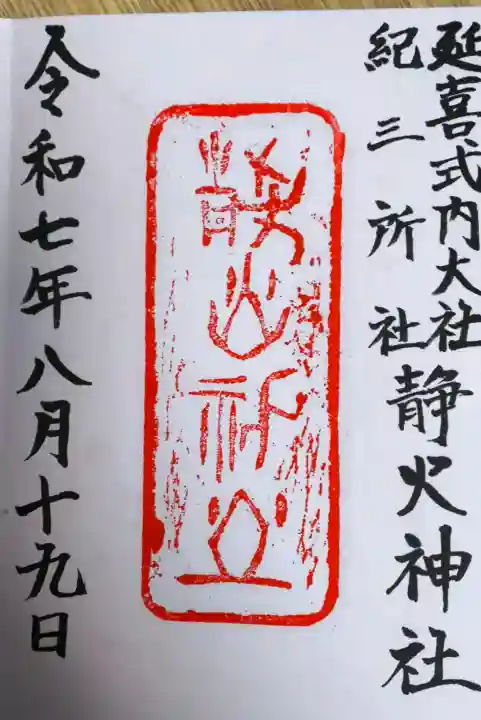 延喜式内大社
紀三所社
静火神社
静火神社
令和七年八月十九日